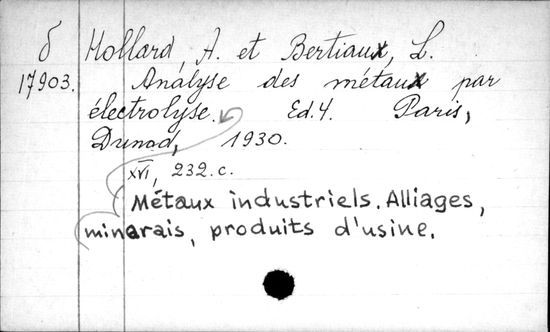 δ Hollard, A. et Bertiaux, L.
17903. Analyse des métaux par
électrolyse. Ed.4. Paris,
Dunod, 1930.
XVI, 232.c.
Métaux industriels. Alliages,
minerais, produits d'usine.